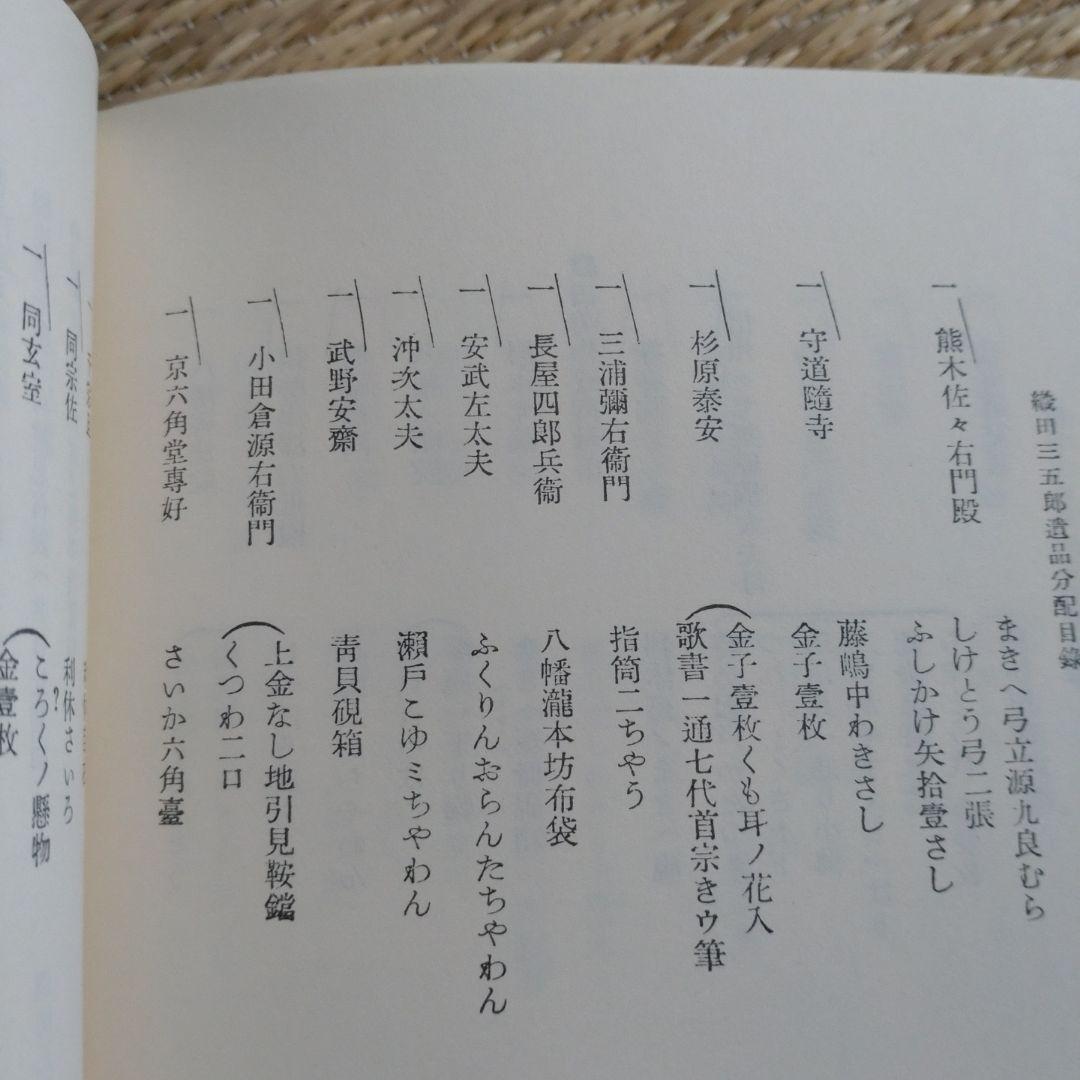 織田三五郎遺品分配目錄
まきへ弓立源九良むら
一 熊木佐々右門殿 しけとう弓二張
ふしかけ矢拾壹さし
藤嶋中わきさし
一 守道隨寺 金子壹枚
一 杉原泰安 金子壹枚くも耳ノ花入
歌書一通七代首宗きゥ筆
一 三浦彌右衞門 指筒二ちやう
一 長屋四郎兵衞 八幡瀧本坊布袋
一 安武左太夫 ふくりんおらんたちやわん
一 沖次太夫 瀨戸こゆミちやわん
一 武野安齋 靑貝硯箱
一 小田倉源右衞門 上金なし地引見鞍鐙
くつわ二口
一 京六角堂專好 さいか六角臺
一 同宗佐 利休さいろ
?
一 同玄室 ころくノ懸物
金壹枚